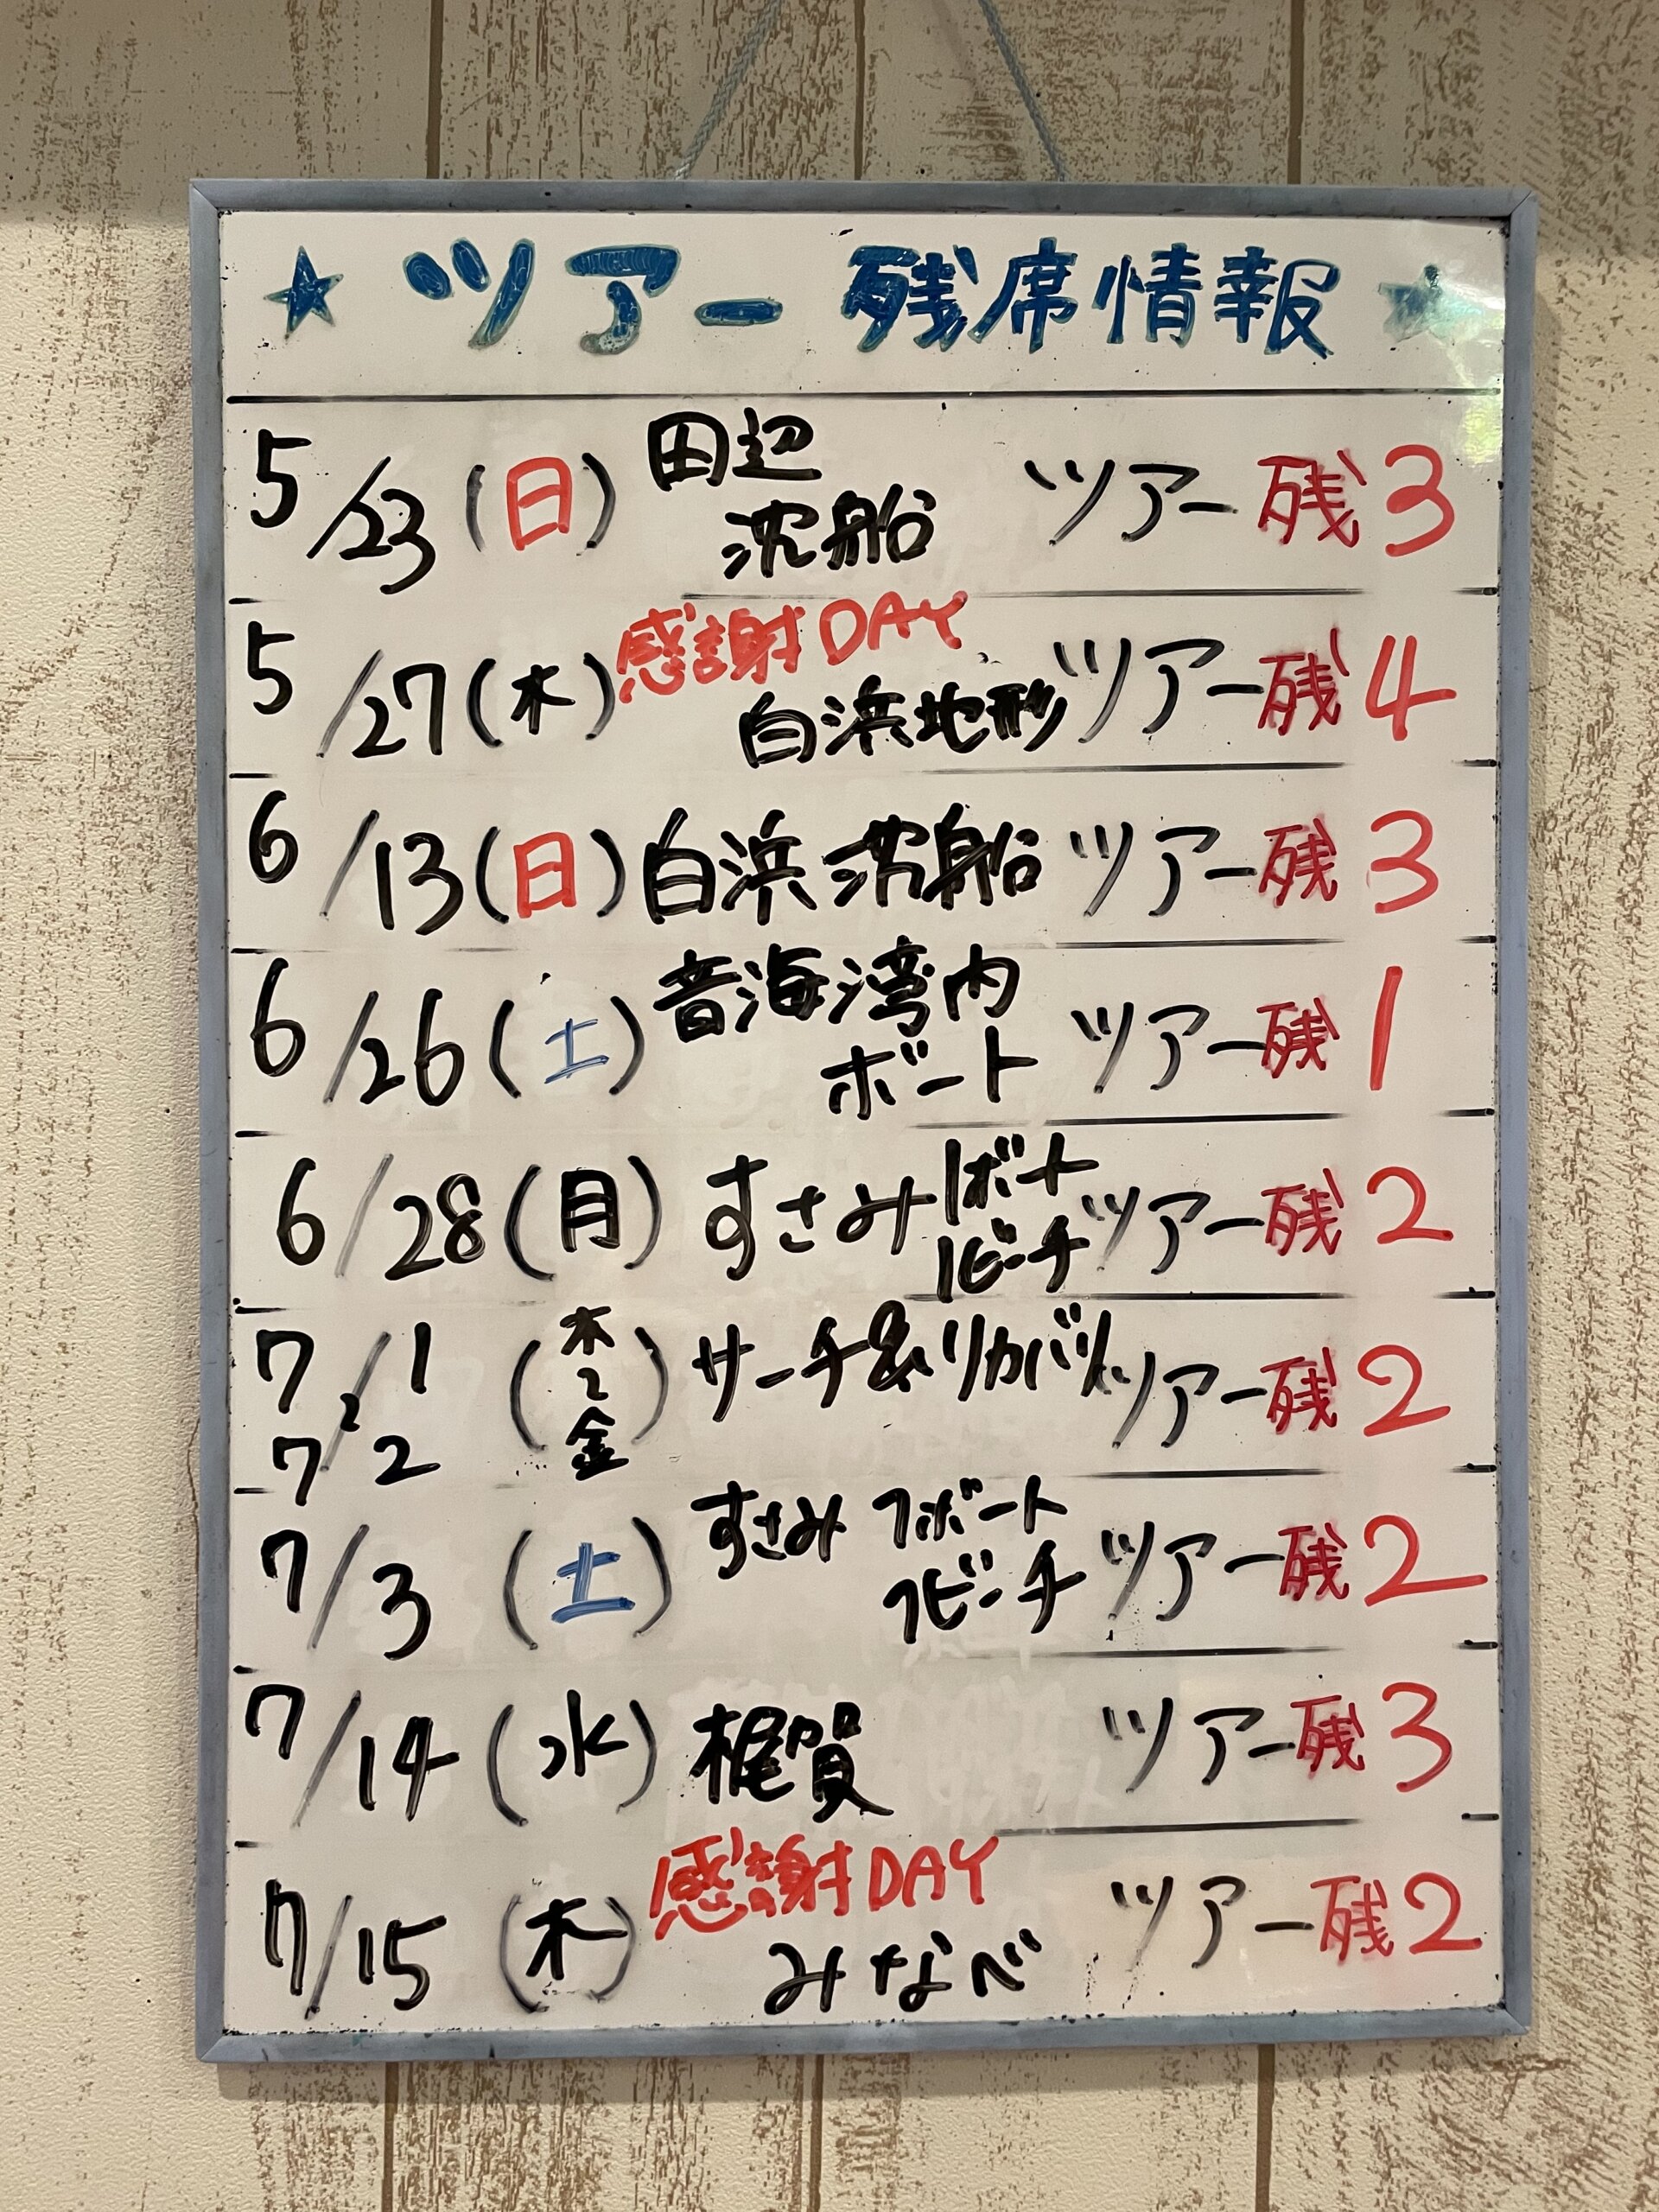 ★ツアー残席情報★
5/23(日)田辺
沈船 ツアー残3
感謝DAY
5/27(木)白浜地形ツアー残4
6/13(日)白浜沈船ツアー残3
6/26(土)音海湾内
ボート ツアー残1
6/28(月)すさみ1ボート
1ビーチツアー残2
7/1(木)サーチ&リカバリーツアー残2
7/2(金)
7/3(土)すさみ1ボート
1ビーチツアー残2
7/14(水)梶賀 ツアー残3
感謝DAY
7/15(木)みなべ ツアー残2